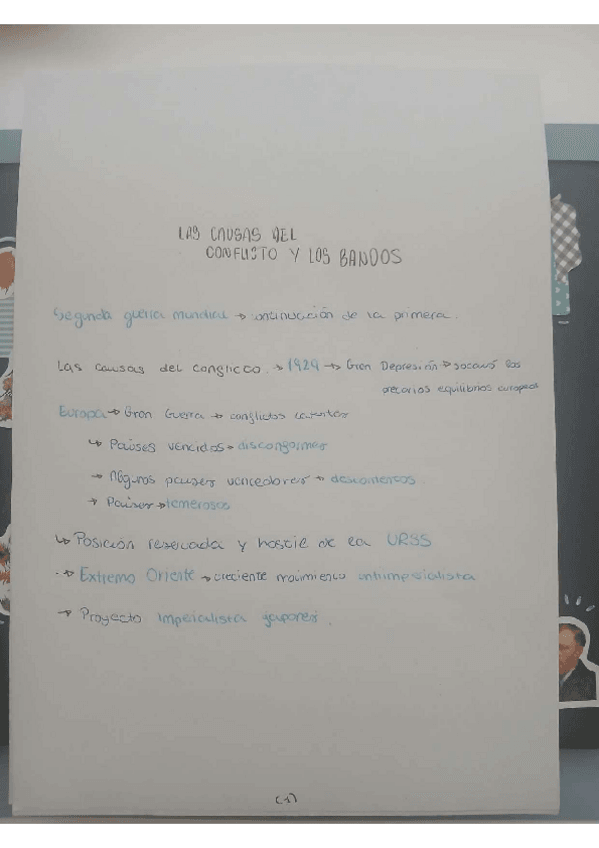 LAS CAUSAS DEL
CONFLICTO Y LOS BANDOS
Segunda guerra mundial → continuación de la primera.
Las causas del conflicto → 1929 → Gran Depresión → socavó los
precarios equilibrios europeos
Europa → Gran Guerra → conflictos latentes
↳ Países vencidos → disconformes
→ Algunos países vencedores → descontentos
→ Países → temerosos
↳ Posición reservada y hostil de la URSS
→ Extremo Oriente → creciente movimiento antiimperialista
→ Proyecto imperialista japonés.
(1)